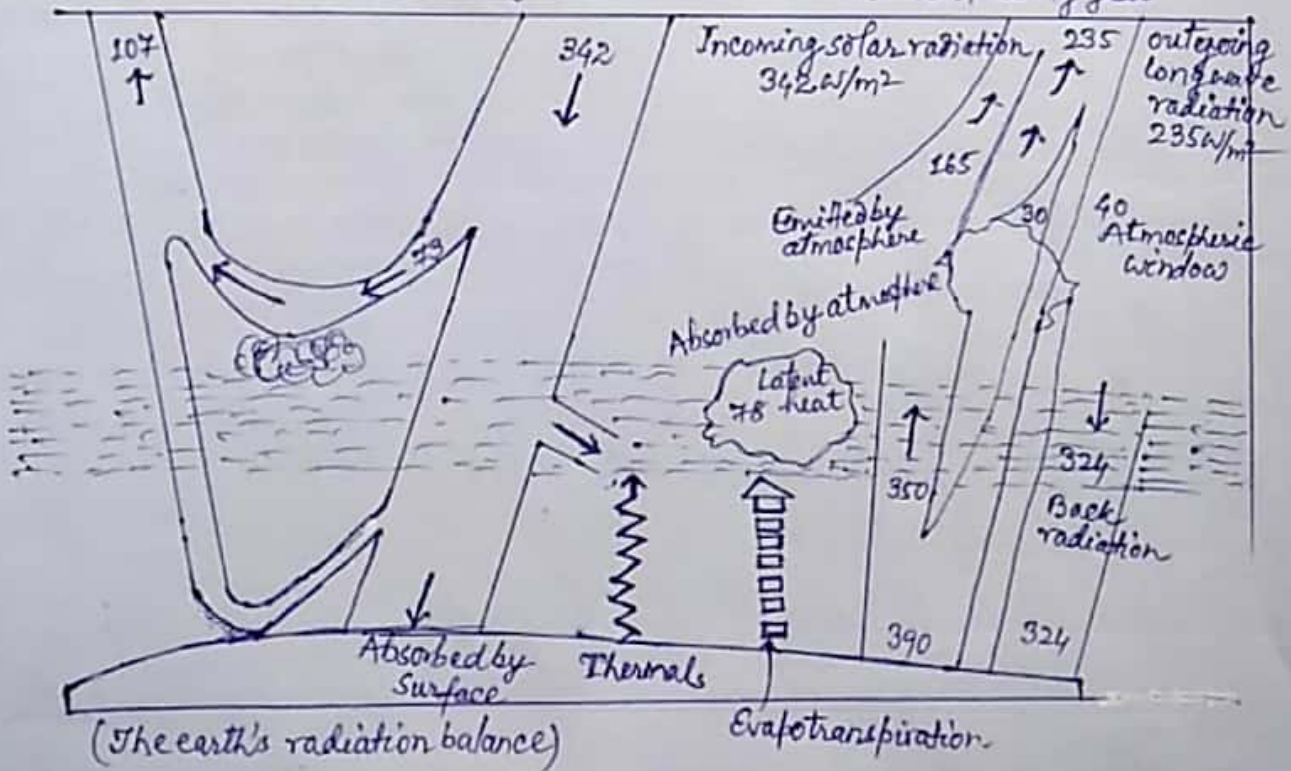 107
342
Incoming solar radiation
342 W/m²
235
outgoing
long wave
radiation
235 W/m²
165
Emitted by
atmosphere
30
40
Atmospheric
window
Absorbed by atmosphere
Latent
78 heat
350
324
Back
radiation
390
324
Absorbed by
Surface
Thermals
Evapotranspiration
(The earth's radiation balance)